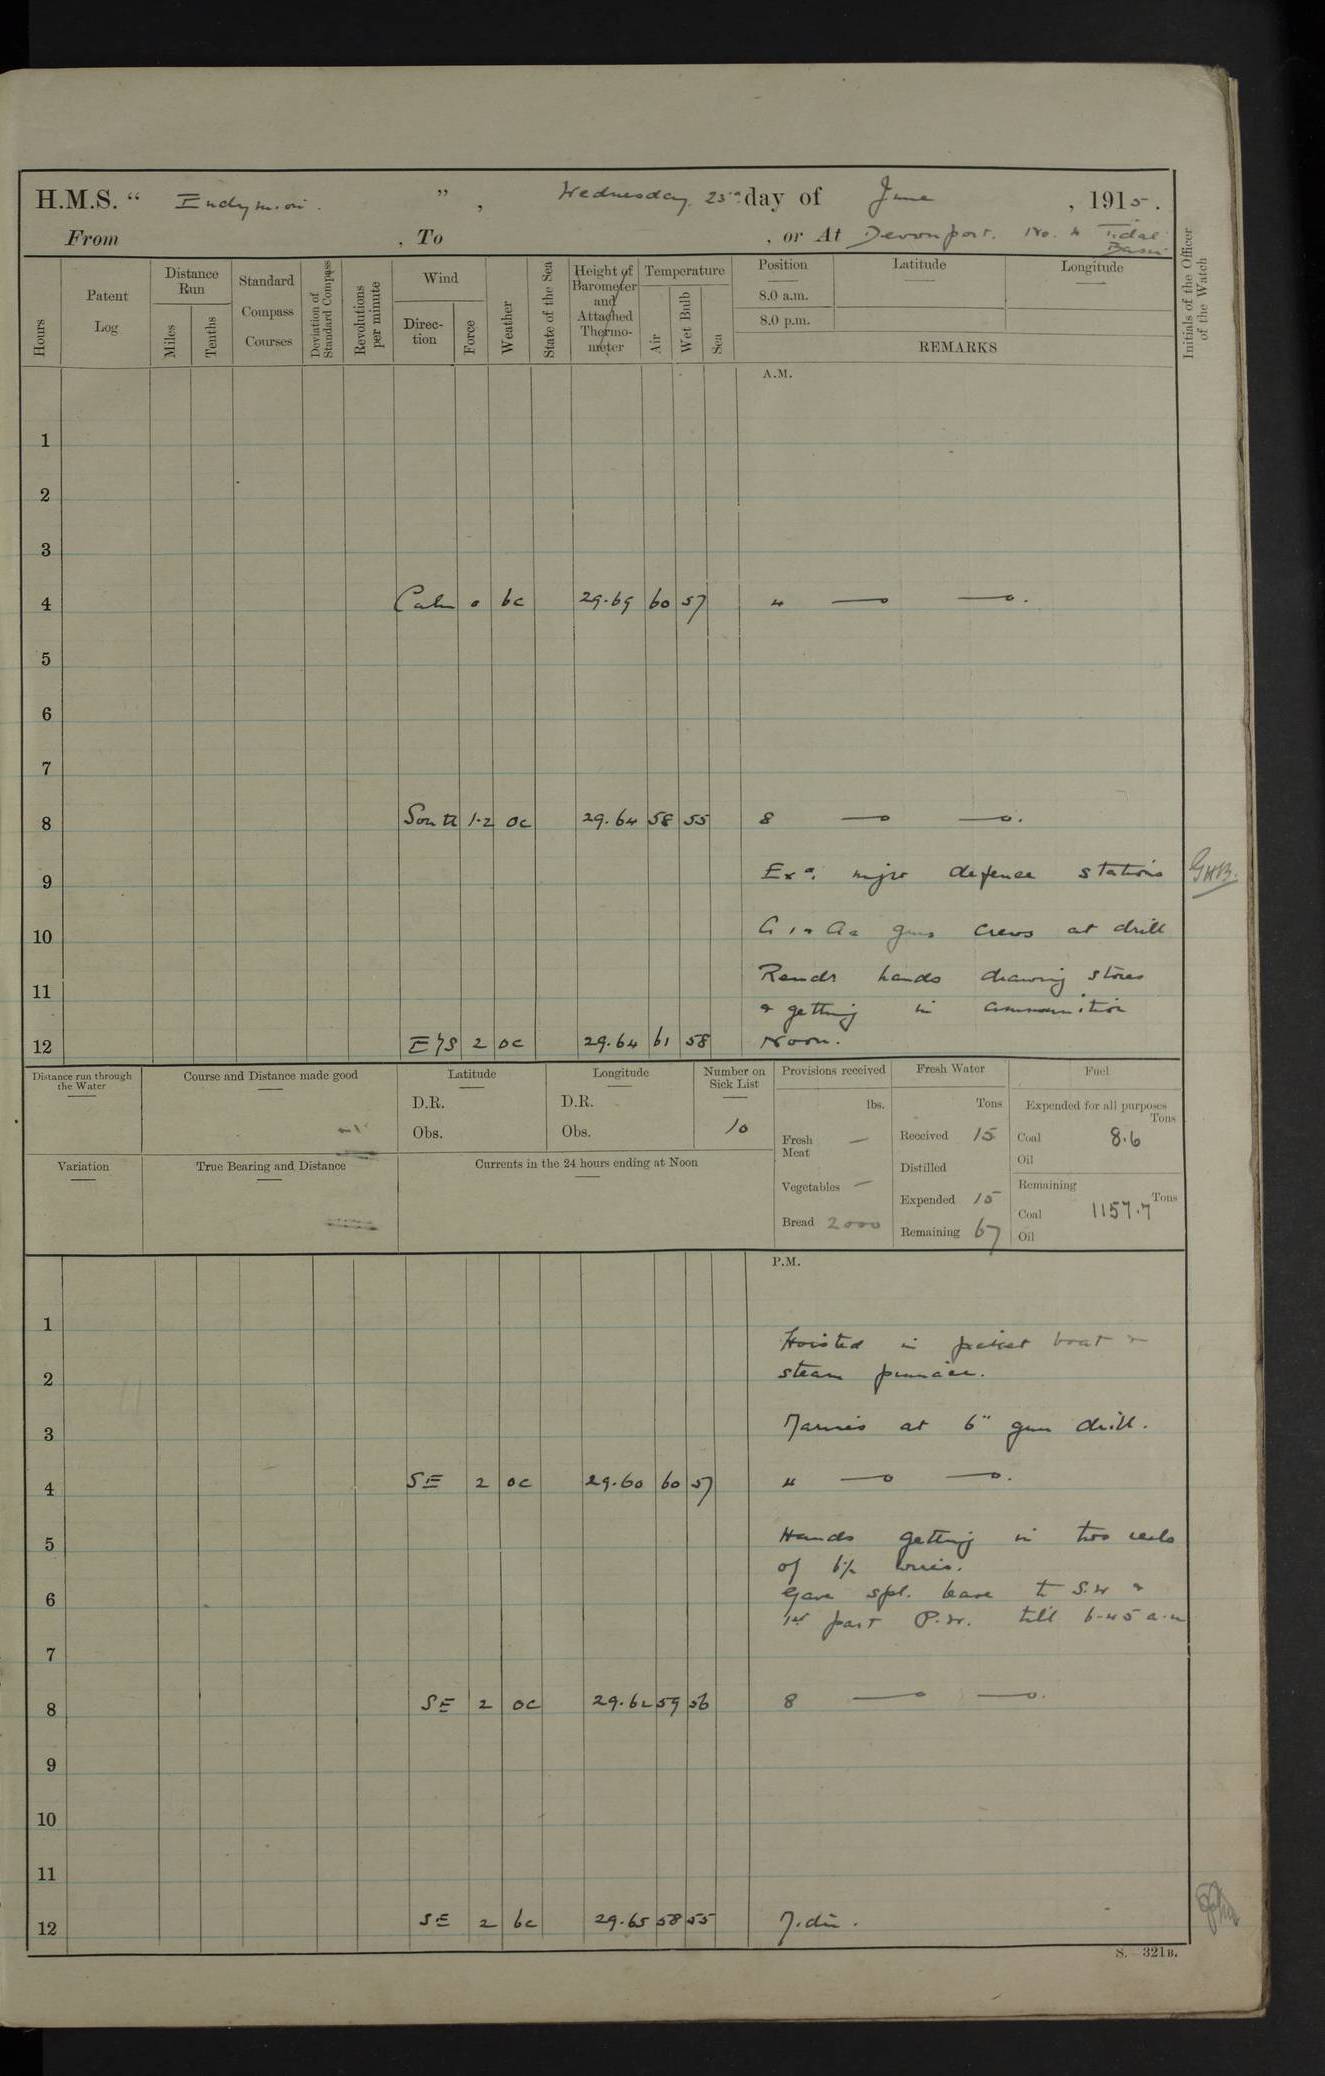 H.M.S. “ Endymion. ” , Wednesday 23rd day of June , 1915.
From , To , or At Devonport. No. 4 Tidal
Basin
Hours
Patent Log
Distance Run
Miles
Tenths
Standard Compass Courses
Deviation of Standard Compass
Revolutions per minute
Wind
Direction
Force
Weather
State of the Sea
Height of Barometer and Attached Thermometer
Temperature
Air
Wet Bulb
Sea
Position
8.0 a.m.
8.0 p.m.
Latitude
Longitude
REMARKS
Initials of the Officer of the Watch
A.M.
1
2
3
4 Calm 0 bc 29.69 60 57 4 —o —o.
5
6
7
8 South 1.2 oc 29.64 58 55 8 —o —o.
9 Exd. defence stations GHB.
10 guns crews at drill
Remdr hands drawing stores
11
& getting in ammunition
12 E/S 2 oc 29.64 61 58 Noon.
Distance run through the Water
Course and Distance made good
Latitude
D.R.
Obs.
Longitude
D.R.
Obs.
Number on Sick List
10
Provisions received
lbs.
Fresh Meat —
Vegetables —
Bread 2000
Fresh Water
Tons
Received 15
Distilled
Expended 15
Remaining 67
Fuel
Expended for all purposes
Tons
Coal 8.6
Oil
Remaining
Tons
Coal 1157.7
Oil
Variation
True Bearing and Distance
Currents in the 24 hours ending at Noon
P.M.
1
Hoisted in picket boat &
2 steam pinnace.
3 Marines at 6" gun drill.
4 SE 2 oc 29.60 60 57 4 —o —o.
5 Hands getting in two reels
of 6½ wires.
6 Gave spl. leave to S.W &
1st part P.W. till 6.45 a.m
7
8 SE 2 oc 29.62 59 56 8 —o —o.
9
10
11
12 SE 2 bc 29.65 58 55
S.—321B.